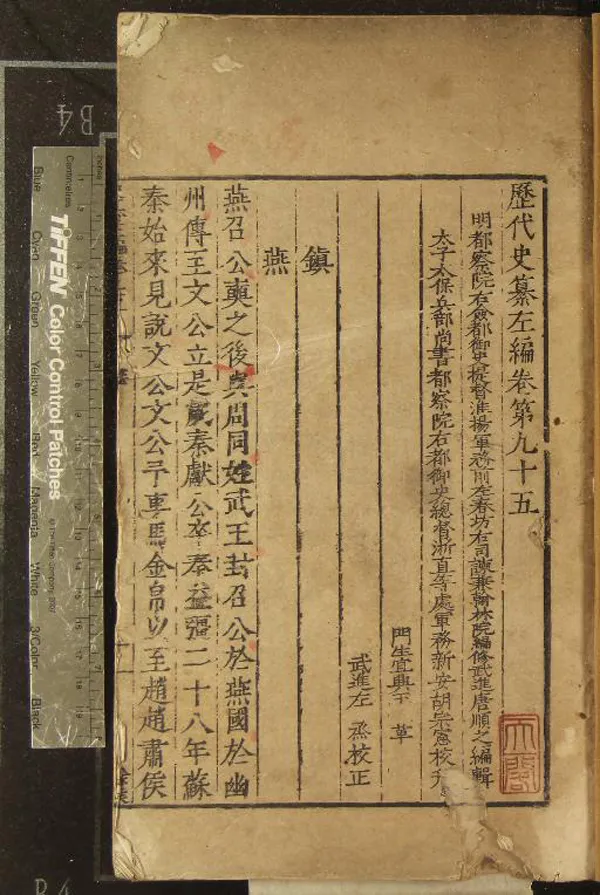 歷代史纂左編卷第九十五
明都察院右僉都御史提督淮揚軍務前左春坊右司諫兼翰林院編修武進唐順之編輯
太子太保兵部尚書都察院右都御史總督浙直等處軍務新安胡宗憲校
門生宜興王 革
武進左 烝校正
鎮
燕
燕召公奭之後與周同姓武王封召公於燕國於幽
州傳至文公立是歲秦獻公卒秦益彊二十八年蘇
秦始來見說文公文公予車馬金帛以至趙趙肅侯
B4
TIFFEN Color Control Patches
Blue
Cyan
Green
Yellow
Red
Magenta
White
3/Color
Black
Centimetres
B4